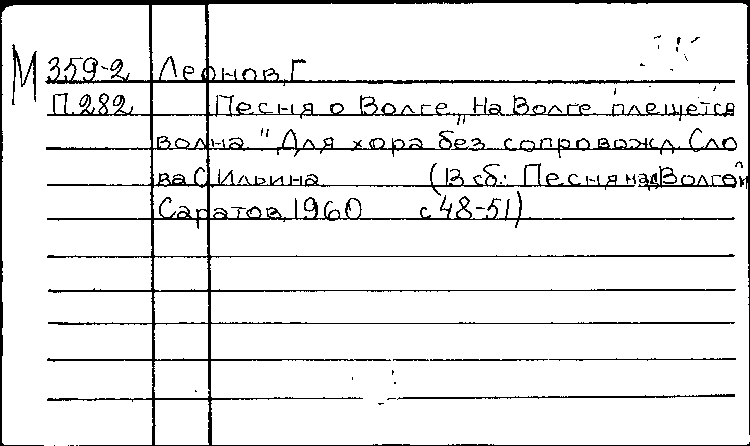 М 359-2 Леонов, Г.
П.282 Песня о Волге „На Волге плещется
волна". Для хора без сопровожд. Сло
ва С. Ильина (В сб.: Песня над Волгой
Саратов, 1960 с 48-51)